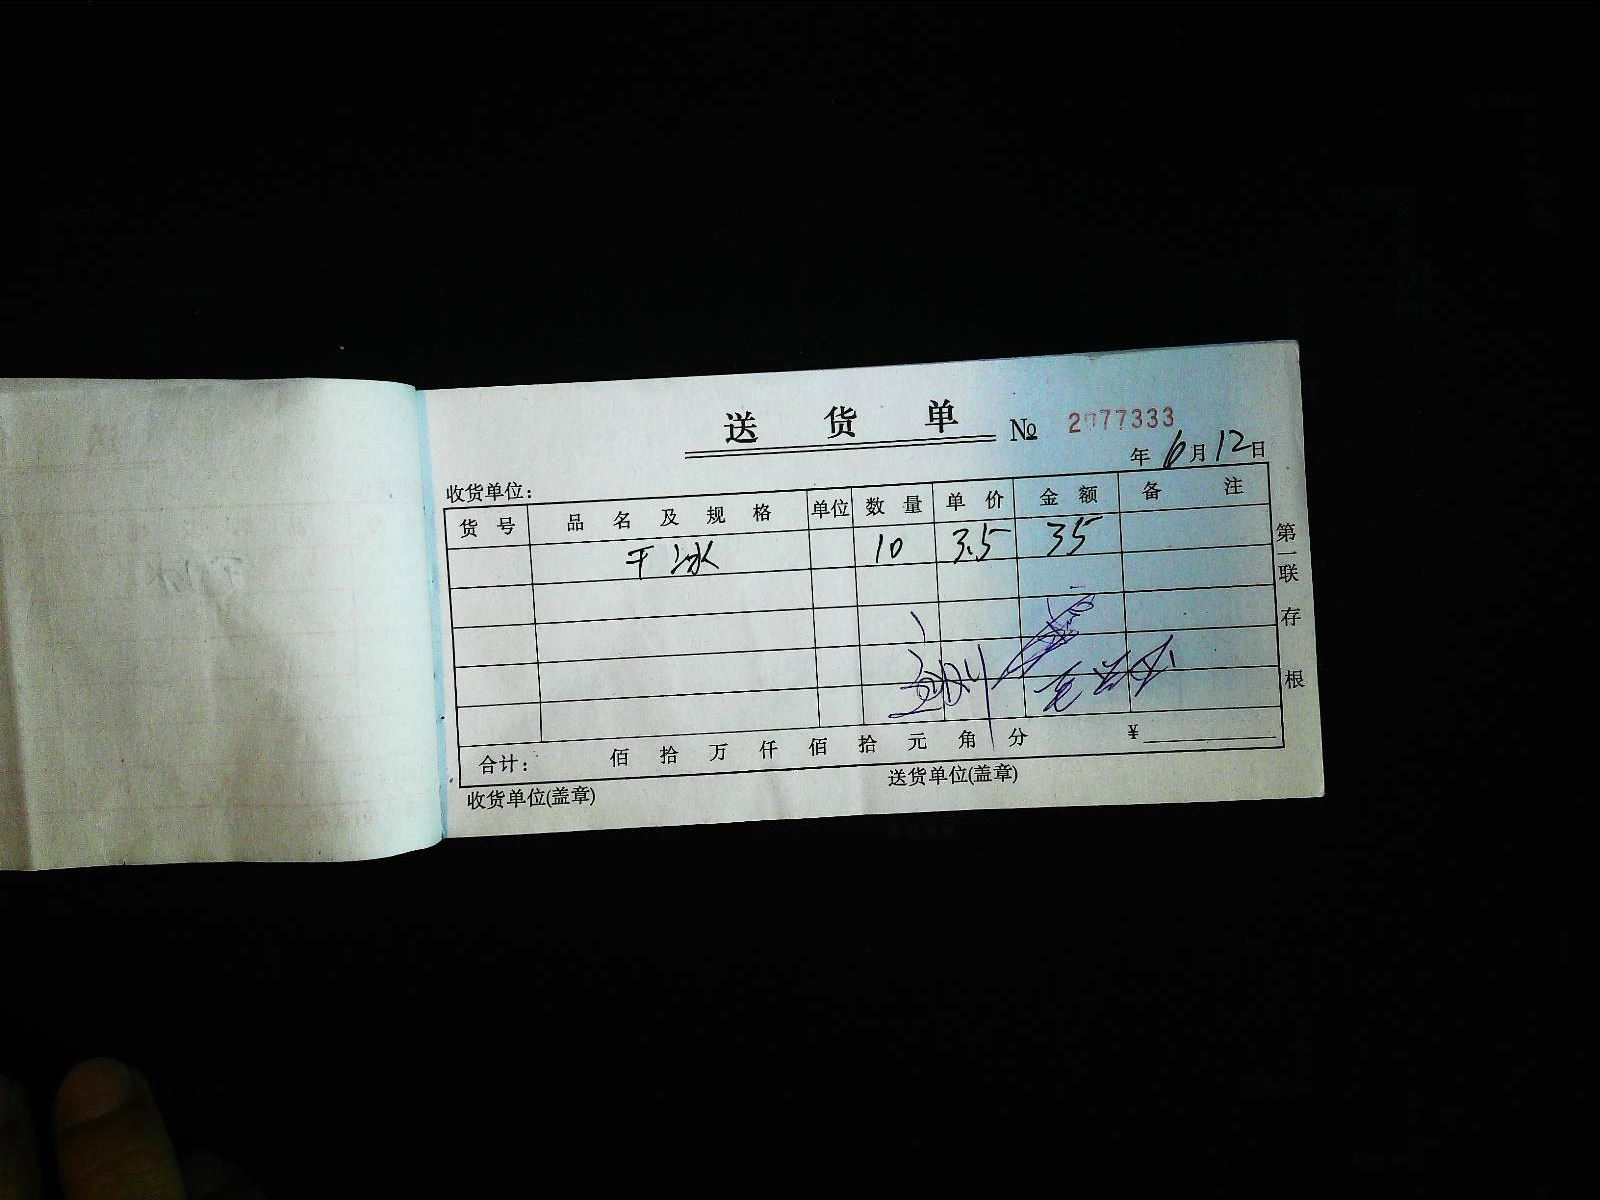 送货单 № 2077333
年6月12日
收货单位:
货号 品名及规格 单位 数量 单价 金额 备注
干冰 10 3.5 35
合计: 佰拾万仟佰拾元角分 ¥
收货单位(盖章) 送货单位(盖章)
第一联存根